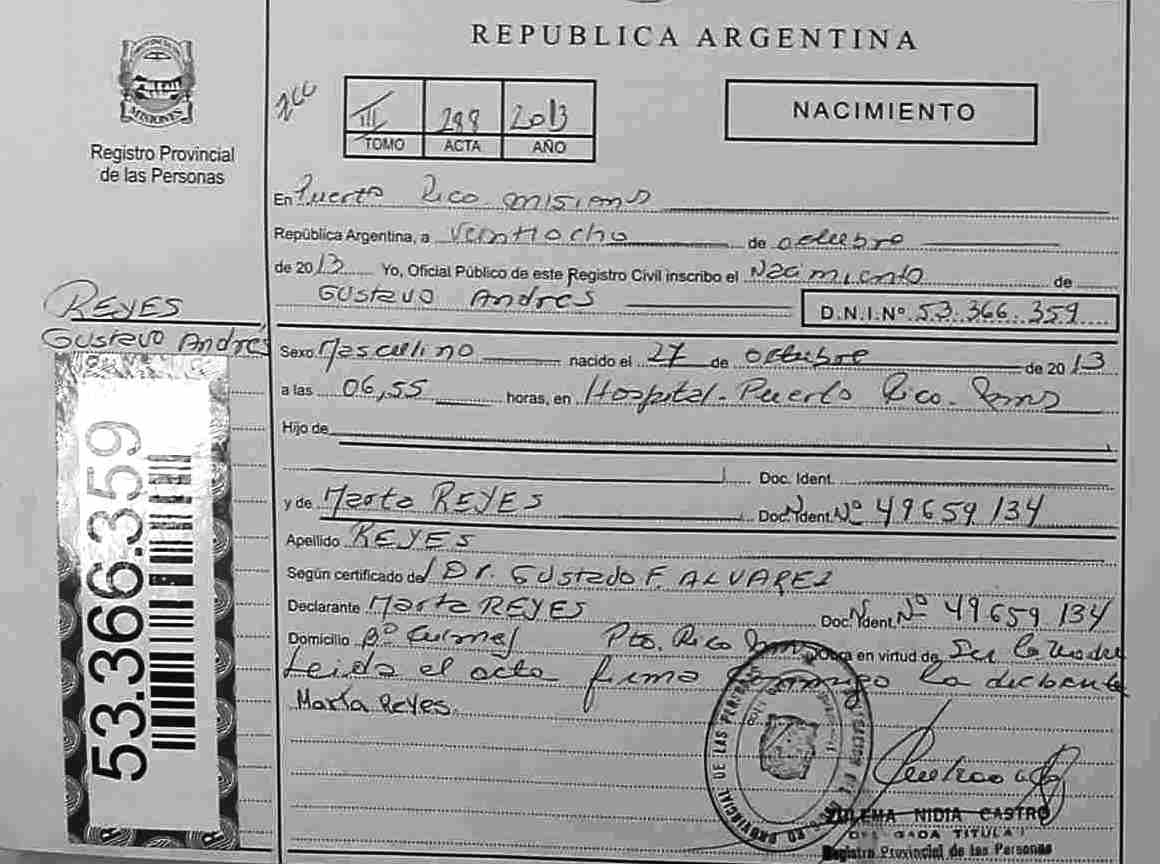 REPUBLICA ARGENTINA
MISIONES
Registro Provincial
de las Personas
III 299 2013
TOMO ACTA AÑO
NACIMIENTO
En Puerto Rico misiones
República Argentina, a Veintiocho de octubre
de 2013 Yo, Oficial Público de este Registro Civil inscribo el Nacimiento de
Gustavo Andres
D.N.I.Nº 53.366.359
REYES
Gustavo Andrés
Sexo Masculino nacido el 27 de octubre de 2013
a las 06,55 horas, en Hospital - Puerto Rico - Mns
Hijo de
Doc. Ident.
y de Marta REYES Doc. Ident. Nº 49659134
Apellido REYES
Según certificado del Dr. GUSTAVO F. ALVAREZ
Declarante Marta REYES Doc. Ident. Nº 49659134
Domicilio Bº Pto. Rico Obra en virtud de Ser la madre
Leida el acta firma conmigo la declarante
Marta Reyes.
53.366.359
ZULEMA NIDIA CASTRO
DELEGADA TITULAR
Registro Provincial de las Personas